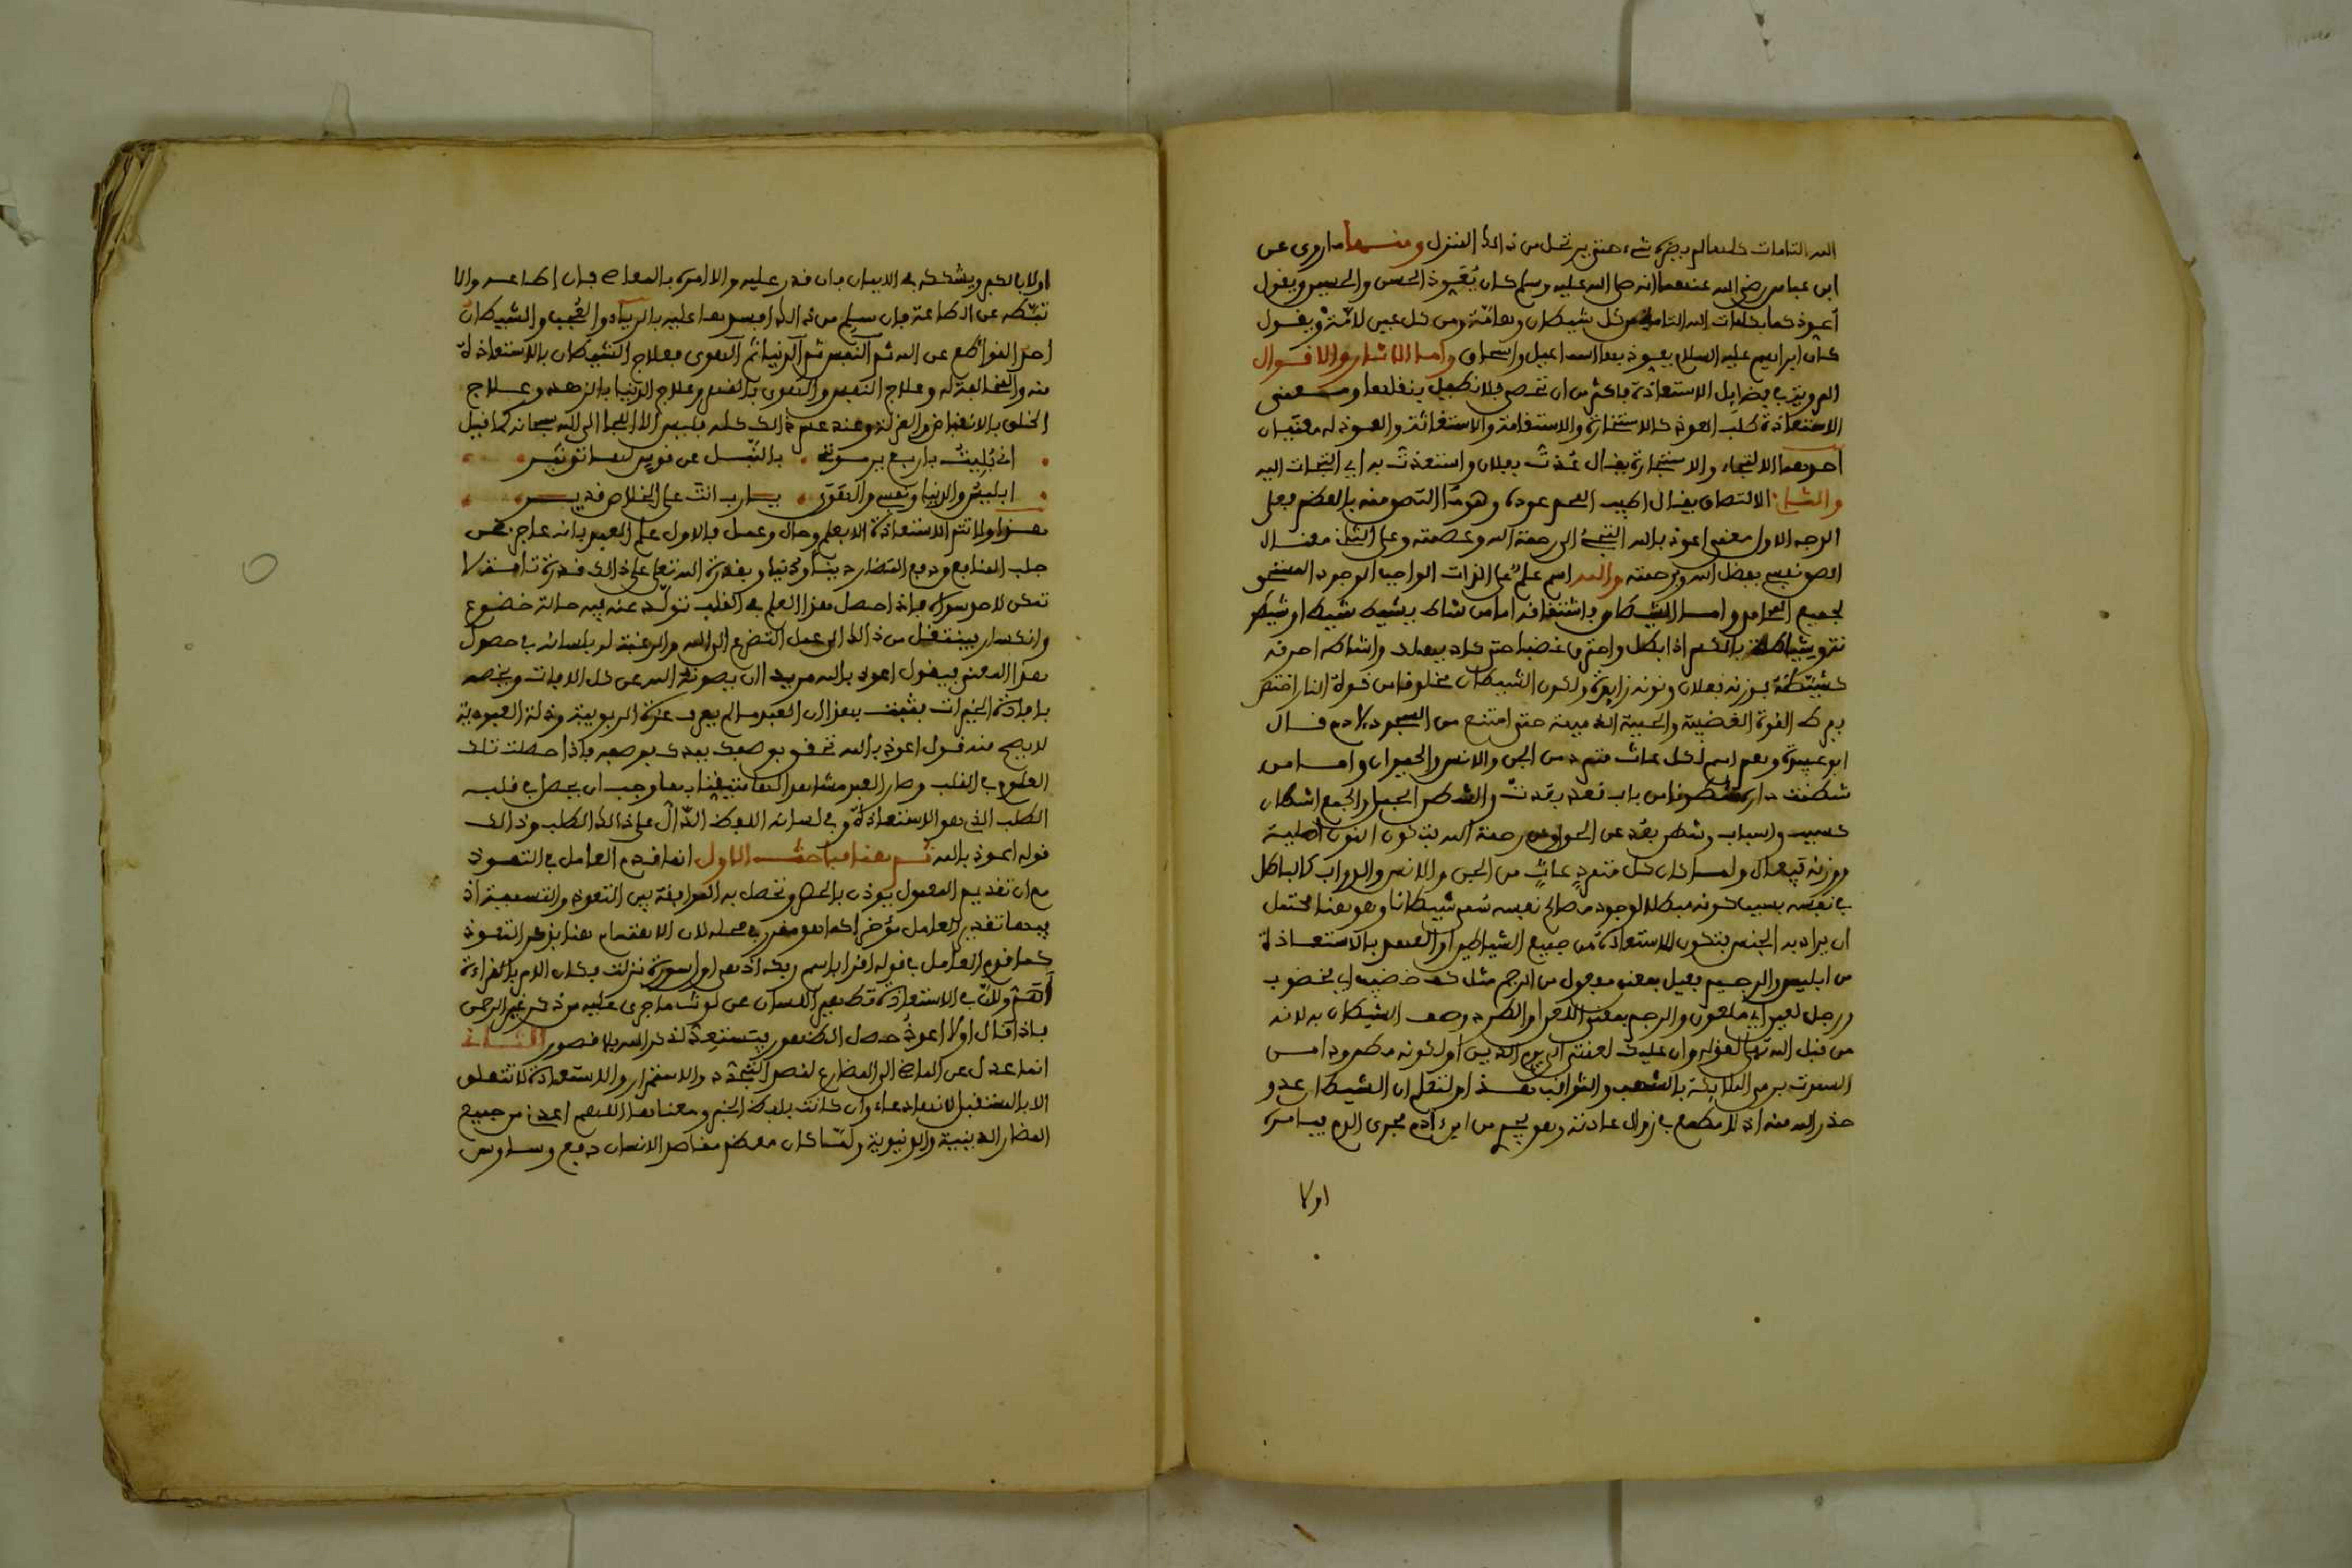 الله التامات كلها لم يضره شيء حتى يرتحل من ذلك المنزل ومنها ما روي عن
ابن عباس رضي الله عنهما انه صلى الله عليه وسلم كان يعوذ الحسن والحسين ويقول
أعيذكما بكلمات الله التامة من كل شيطان وهامّة ومن كل عين لامّة ويقول
كان ابراهيم عليه السلام يعوذ بها اسماعيل واسحاق واما الاثار والاقوال
المروية في فضايل الاستعاذة فاكثر من ان تحصى فلا نطيل بنقلها ومعنى
الاستعاذة طلب العوذ كالاستخارة والاستقامة والاستغاثة والعوذ له معنيان
احدهما الالتجاء والاستجارة يقال عُذت بفلان واستعذت به اي التجات اليه
والثاني الالتصاق يقال اطيب اللحم عوذه وهو ما التصق منه بالعظم فعلى
الوجه الاول معنى اعوذ بالله التجئ الى رحمة الله وعصمته وعلى الثاني معناه
الصق نفسي بفضل الله وبرحمته والله اسم علم على الذات الواجب الوجود المستحق
لجميع المحامد واما الشيطان فاشتقاقه اما من شاط يشيط شيطا او شيطـ
ـة وشياطة بالكسر اذا بطل واحترق غضبا حتى كاد يهلك واشاطه احرقه
كشيّطه فوزنه فعلان ونونه زايدة ولكون الشيطان مخلوقا من قوة النار اختص
بفرط القوة الغضبية والحمية الذميمة حتى امتنع من السجود لادم قال
ابو عبيدة وهو اسم لكل عات متمرد من الجن والانس والحيوان واما من
شطنت داره شطونا من باب قعد بعدت والشطن الحبل والجمع اشطان
كسبب واسباب وشطن بعُد عن الحق او من رحمة الله فتكون النون اصلية
ووزنه فيعال ولما كان كل متمرد عات من الجن والانس والدواب كالباطل
في نفسه بسبب كونه مبطلا لوجوه مصالح نفسه سُمي شيطانا وهو هنا محتمل
ان يراد به الجنس فتكون الاستعاذة من جميع الشياطين او العهد فالاستعاذة
من ابليس والرجيم فعيل بمعنى مفعول من الرجم مثل كف خضيب اي مخضوب
ورجل لعين اي ملعون والرجم بمعنى اللعن او الطرد وصف الشيطان به لانه
من قبل الله تعالى لقوله وان عليك لعنتي الى يوم الدين او لكونه مطرودا من
السموت برمي الملائكة بالشهب والثواقب هذا ولتعلم ان الشيطان عدو
حذر الله منه اذ لا مطمع في زوال عداوته وهو يجري من ابن ءادم مجرى الدم فيامره
اولا
اولا بالكفر ويشككه في الايمان فان قدر عليه والا امره بالمعاصي فان اطاعه والا
ثبّطه عن الطاعة فان سلم من ذلك افسدها عليه بالرياء والعُجب والشيطان
احد القواطع عن الله ثم النفس ثم الدنيا ثم الهوى فعلاج الشيطان بالاستعاذة
منه والمخالفة له وعلاج النفس والهوى بالقهر وعلاج الدنيا بالزهد وعلاج
الخلق بالانقباض والعزلة وعند عدم ذلك كله فليس الا اللجا الى الله سبحانه كما قيل
اني بُليت باربع يرمونني بالنبل عن قوس لها توتير
ابليس والدنيا ونفسي والهوى يا رب انت على الخلاص قدير
هذا ولا تتم الاستعاذة الا بعلم وحال وعمل فالاول علم العبد بانه عاجز عن
جلب المنافع ودفع المضار دينا ودنيا وبقدرة الله تعالى على ذلك قدرة تامة لا
تمكن لاحد سواه فاذا حصل هذا العلم في القلب تولّد عنه فيه حالة خضوع
وانكسار فينتقل من ذلك الى عمل التضرع الى الله والرغبة له بلسانه في حصول
هذا المعنى فيقول اعوذ بالله مريدا ان يصونه الله عن كل الافات ويخصه
بافادة الخيرات فثبت بهذا ان العبد ما لم يعرف عزة الربوبية وذلة العبودية
لا يصح منه قول اعوذ بالله تحقق بوصفك يمدك بوصفه فاذا حصلت تلك
العلوم في القلب وصار العبد مشاهدا لها متيقنا بها وجب ان يحصل في قلبه
الطلب الذي هو الاستعاذة وفي لسانه اللفظ الدّال على ذلك الطلب وذلك
قوله اعوذ بالله ثم هنا مباحث الاول انما قدم العامل في التعوذ
مع ان تقديم المعمول يوذن بالحصر وتحصل به الموافقة بين التعوذ والتسمية اذ
فيها تقدير العامل مؤخر كما هو مقرر في محله لان الاهتمام هنا بذكر التعوذ
كما قدم العامل في قوله اقرا باسم ربك اذ هي اول سورة نزلت فكان الامر بالقراءة
أهمّ ولانّ في الاستعاذة تطهير اللسان عن لوث ما جرى عليه من ذكر غير الرحمن
فاذا قال اولا اعوذ حصل الطهور فيستعدّ لذكر الله بلا قصور الثاني
انما عدل عن الماضي الى المضارع لقصد التجدد والاستمرار والاستعاذة لا تتعلق
الا بالمستقبل لانها دعاء وان كانت بلفظ الخبر ومعناها اللهم اعذني من جميع
المضار الدينية والدنيوية ولمّا كان معظم مقاصد الانسان دفع وساوس